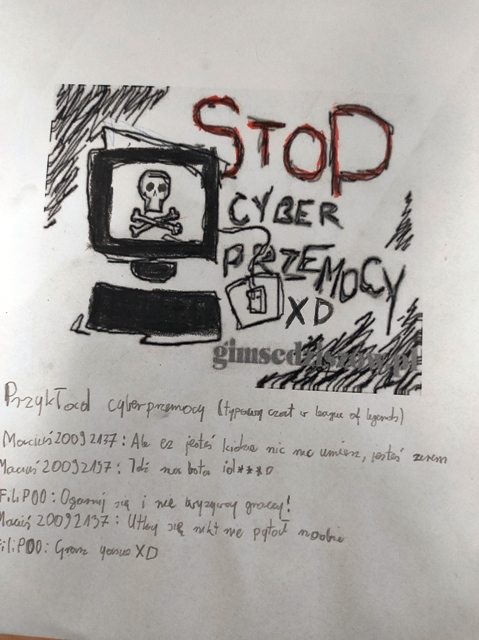 STOP
CYBER
PRZEMOCY
XD
Przykład cyberprzemocy (typowy czat w league of legends)
Maciuś20092137: Ale ez jesteś kidzie nic nie umiesz, jesteś zerem
Maciuś20092137: Idź na bota id***o
FiliP00: Ogarnij się i nie wyzywaj graczy!
Maciuś20092137: Utkaj się nikt nie pytał noobie
FiliP00: Grasz yasuo XD